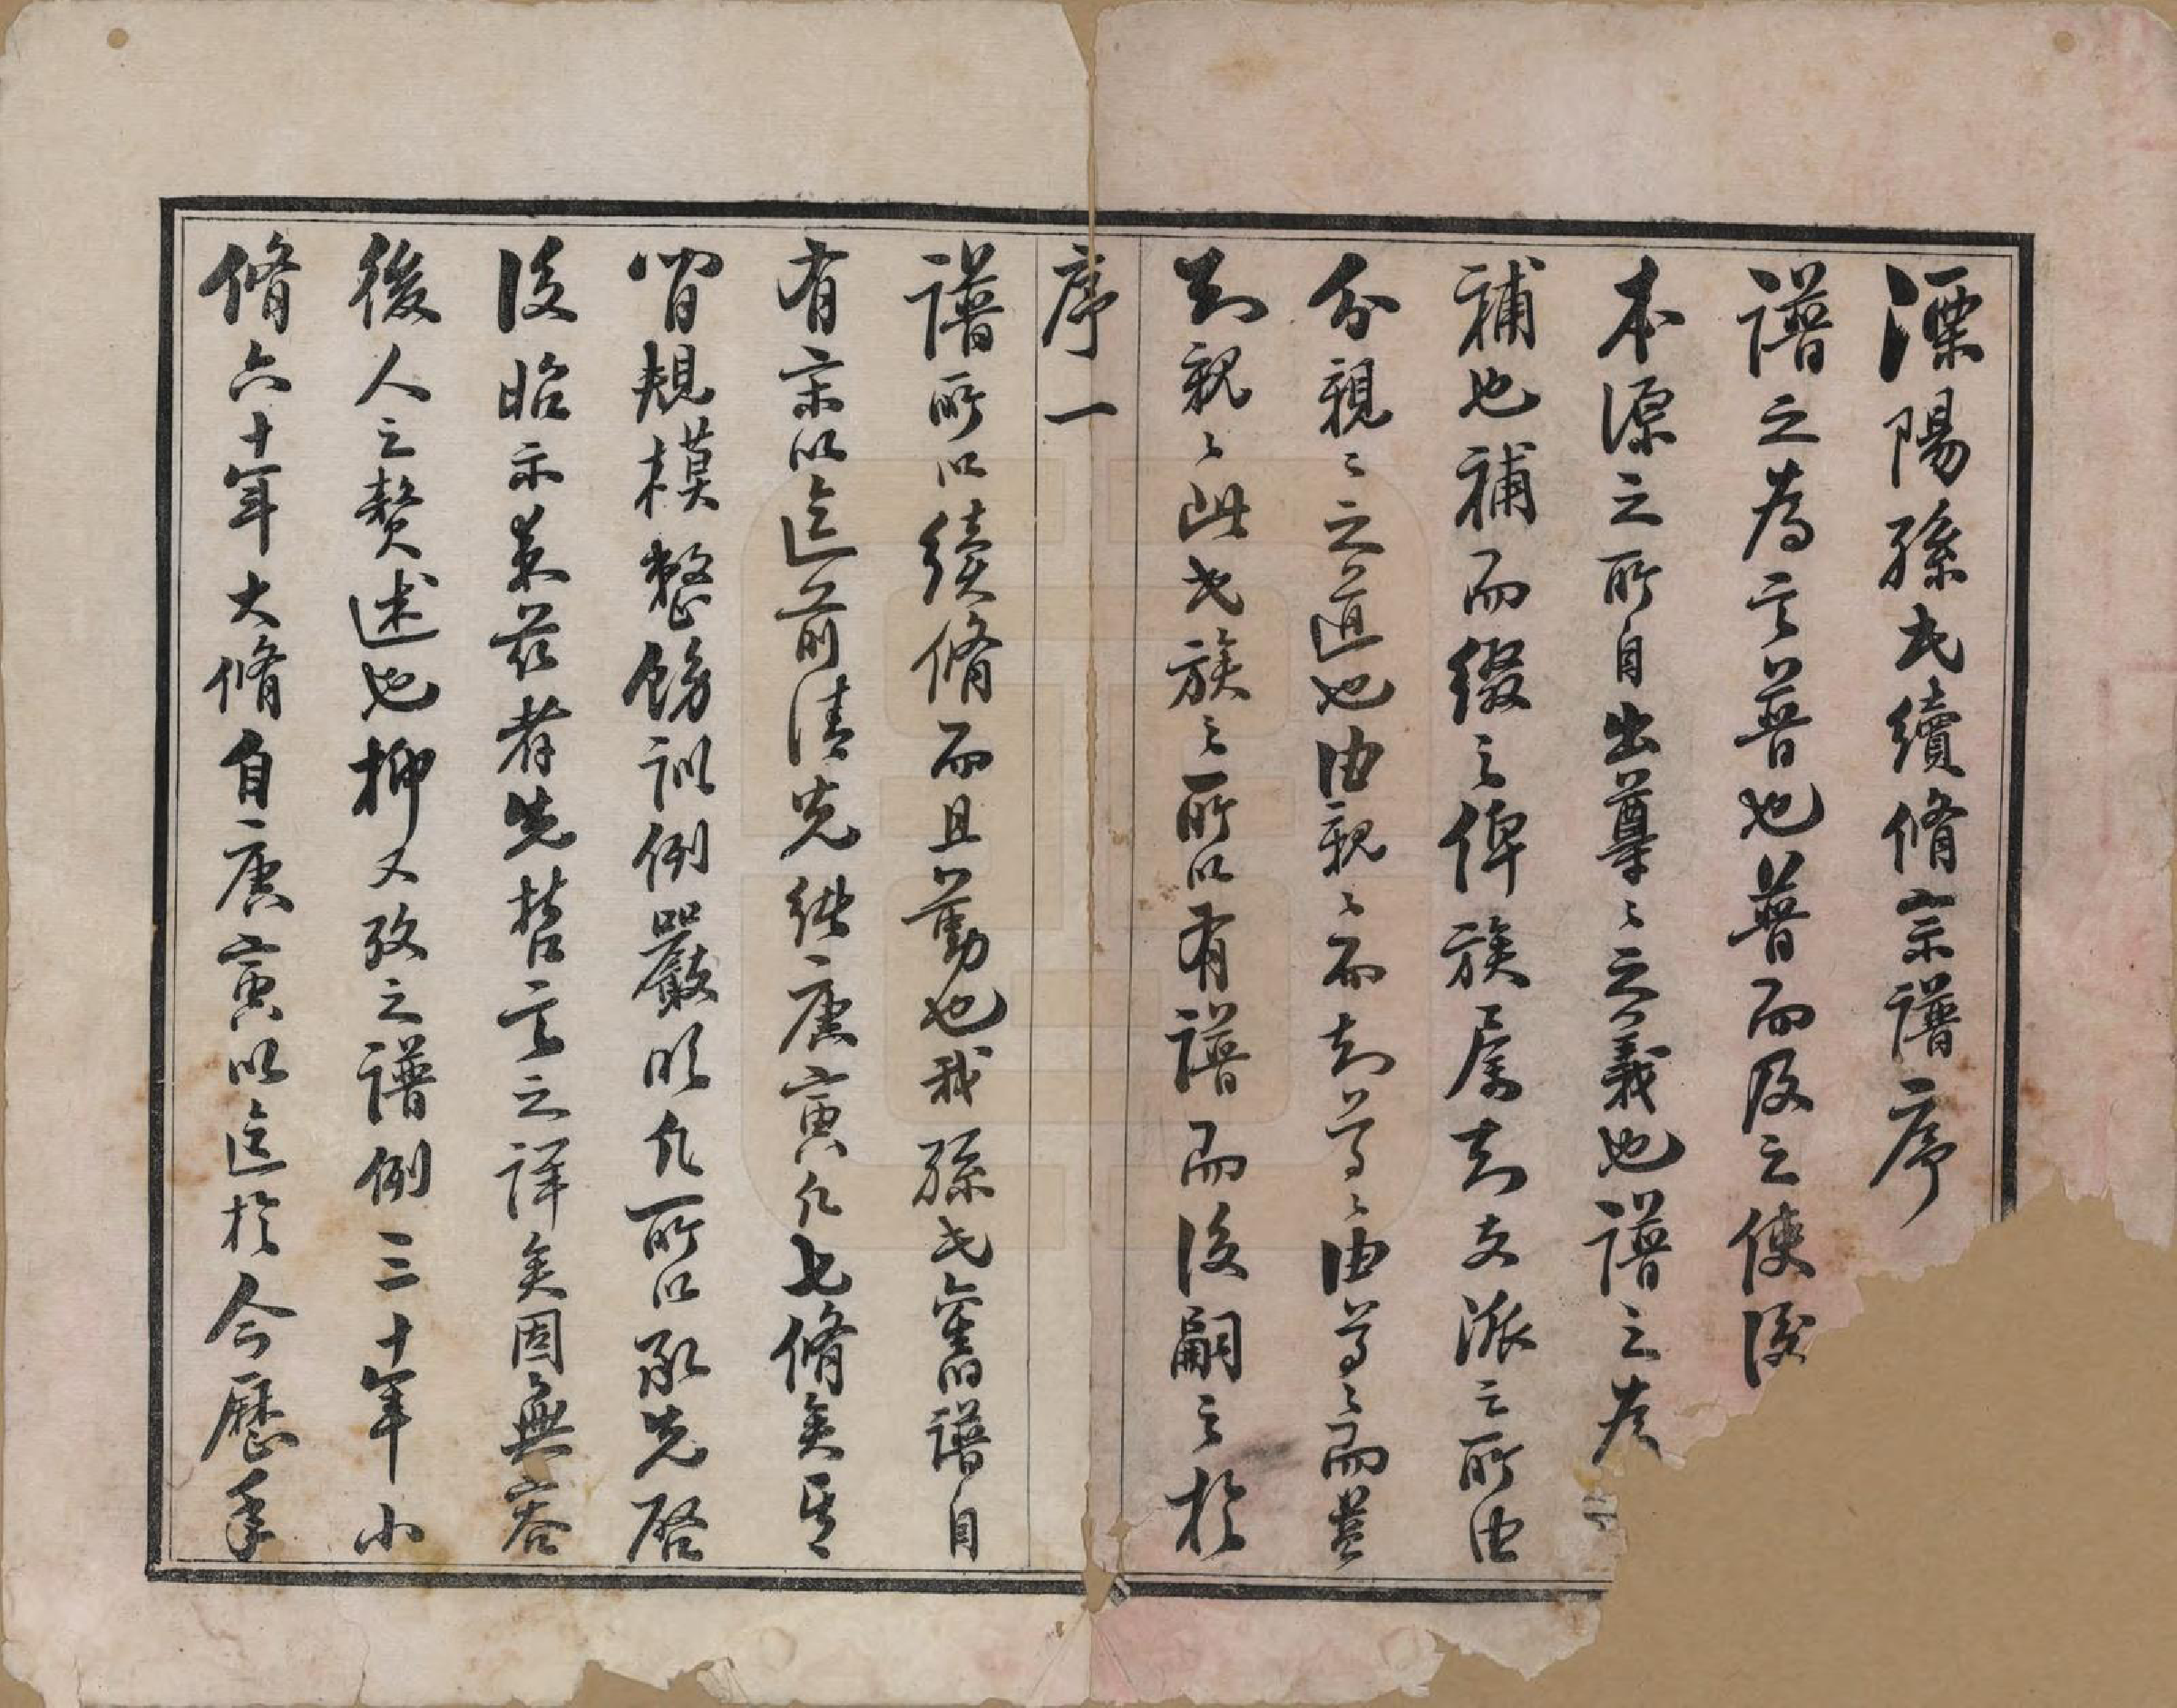 溧陽孫氏續脩宗譜序
譜之為言普也普而及之使後
本源之所自出尊〻之義也譜之為
補也補而綴之俾族屬知支派之所由
分親〻之道也由親〻而知尊〻由尊〻而益
知親〻此氏族之所以有譜而後嗣之於
序一
譜所以續脩而且勤也我孫氏舊譜自
有宋以迄前清光緒庚寅凡七脩矣其
間規模整飭訓例嚴明凡所以承先啓
後昭示來茲者先哲言之詳矣固無容
後人之贅述也抑又攷之譜例三十年小
脩六十年大脩自庚寅以迄於今歷年